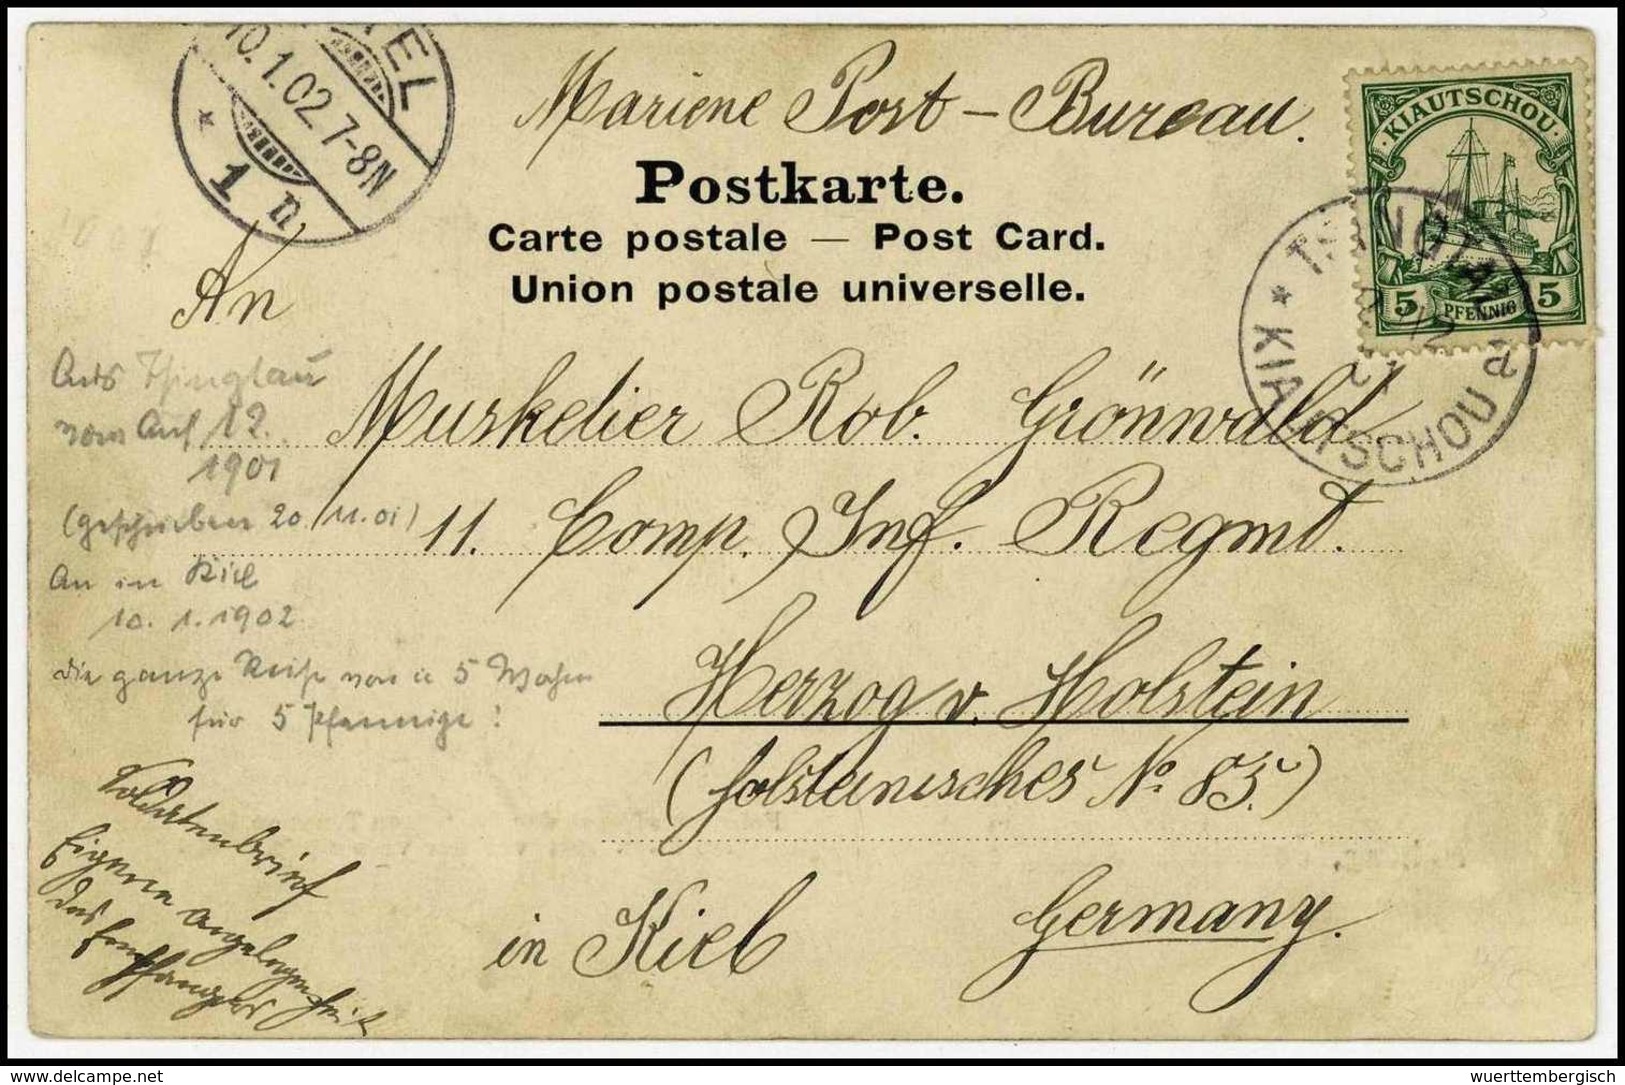 KIEL
10.1.02.7-8N
* 1 n.
Mariene Post-Bureau.
KIAUTSCHOU
5 PFENNIG 5
* TSINGTAU a
KIAUTSCHOU
Postkarte.
Carte postale — Post Card.
Union postale universelle.
An
Muskelier Rob. Grönwald
11. Comp. Inf. Regmt.
Herzog v. Holstein
(holsteinisches No 85.)
in Kiel Germany.
Aus Tsingtau
vom 12.
1901
(geschrieben 20.11.01)
An in Kiel
10.1.1902
die ganze Reise von 5 Wochen
für 5 Pfennige!
Soldatenbrief
Eigene Angelegenheit
des Empfängers
www.ak-ansichtskarten.de
wuerttembergisch